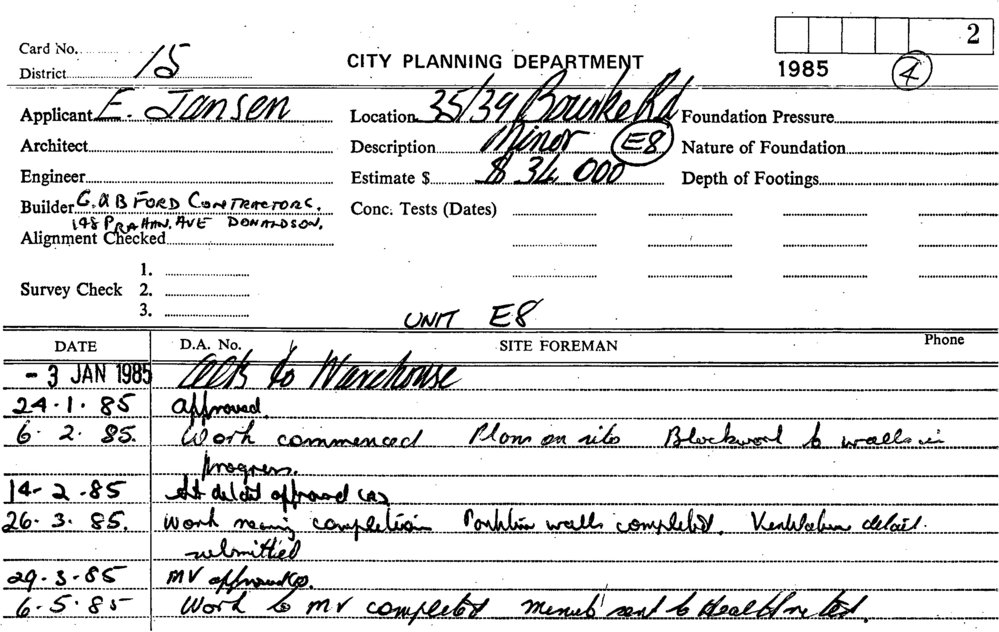 2
Card No. 15
District
CITY PLANNING DEPARTMENT
1985
4
Applicant E. Jansen
Location 35/39 Bourke Rd
Foundation Pressure
Architect
Description Minor E8
Nature of Foundation
Engineer
Estimate $ $ 34 000
Depth of Footings
Builder G & B FORD CONTRACTORS.
148 PRAHAN. AVE DONALDSON.
Conc. Tests (Dates)
Alignment Checked
1.
Survey Check 2.
3.
UNIT E8
DATE D.A. No. SITE FOREMAN Phone
- 3 JAN 1985 Alts to Warehouse
24.1.85 approved
6.2.85. Work commenced Plans on site Blockwork to walls in
progress.
14-2-85 detail approved
26.3.85. Work nearing completion Partition walls completed. Ventilation detail.
submitted
29-3-85 MV approved
6-5-85 Work to MV completed sent to Health